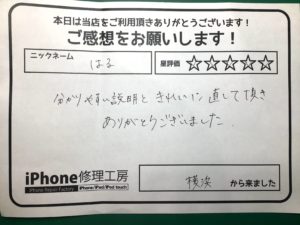 本日は当店をご利用頂きありがとうございます!
ご感想をお願いします!
ニックネーム はる 星評価 ☆☆☆☆☆
分かりやすい説明と きれいに 直して頂き
ありがとうございました。
iPhone修理工房
iPhone Repair Factory iPhone・iPad・iPod touch
横浜 から来ました